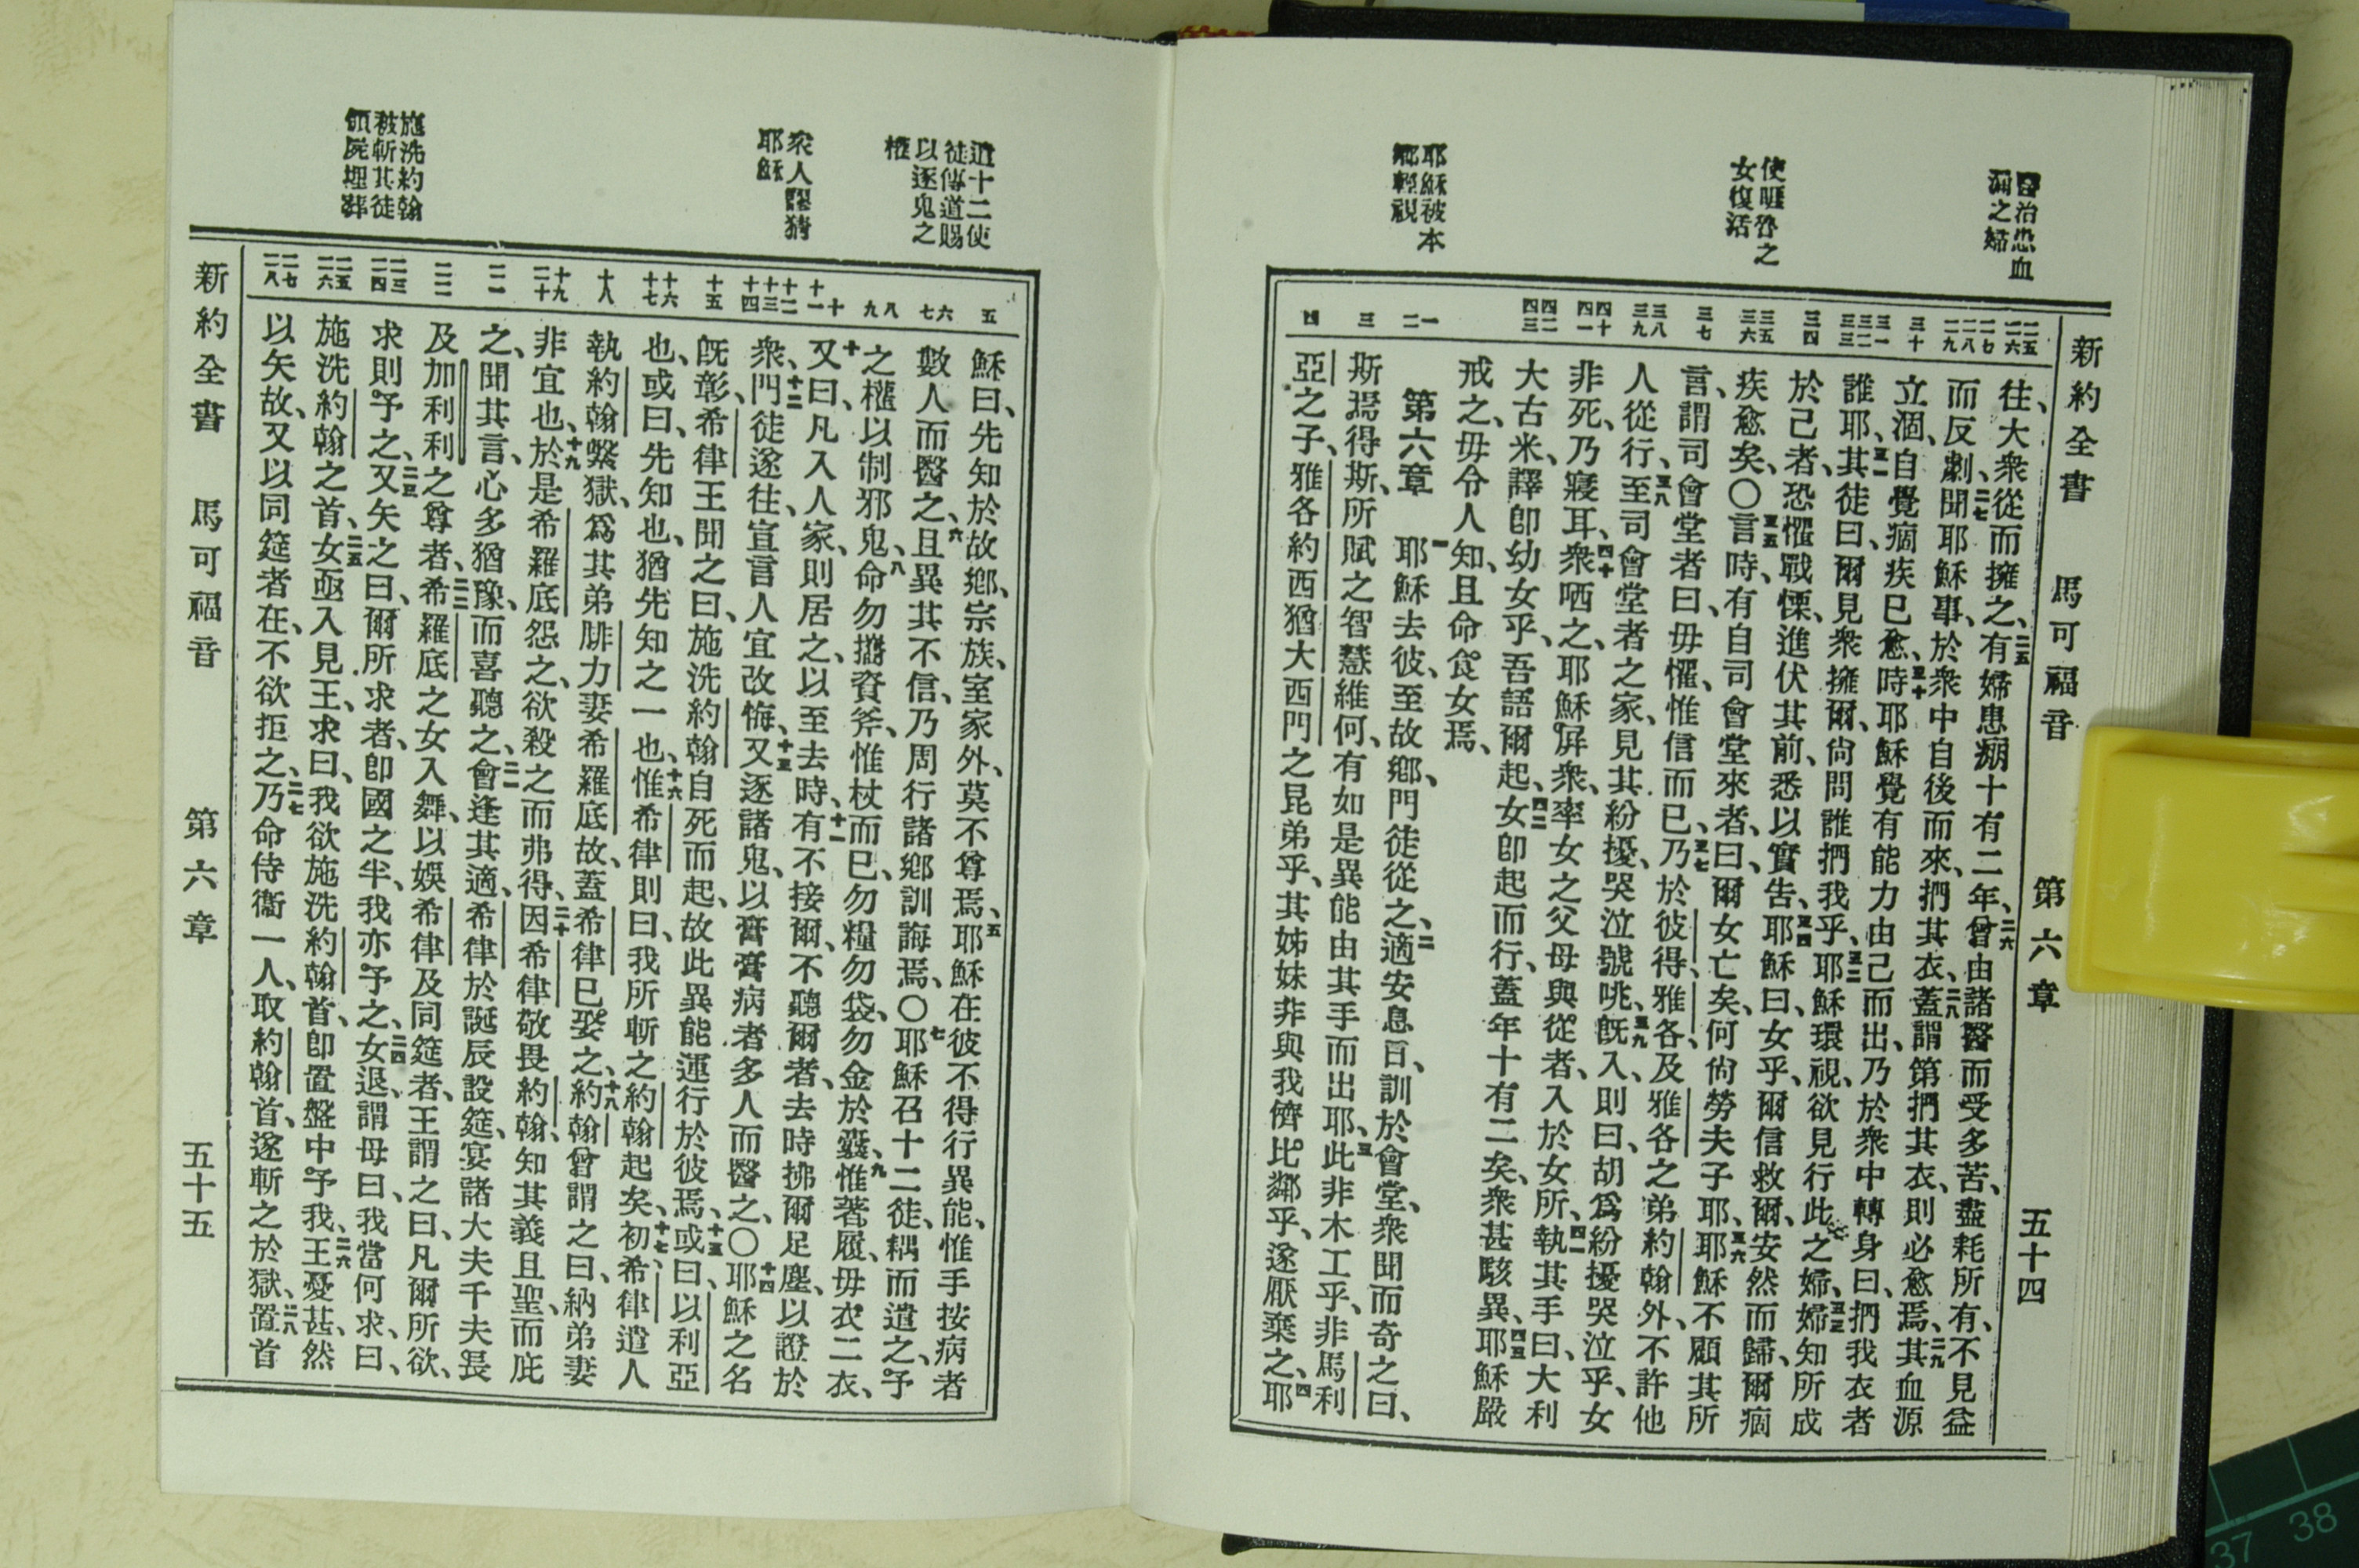 醫治患血
漏之婦
使睚魯之
女復活
耶穌被本
鄉輕視
新約全書 馬可福音 第六章 五十四
二五 二六 二七 二八 二九 三十 三一 三二 三三 三四 三五 三六 三七 三八 三九 四十 四一 四二 四三 一 二 三 四
往、大衆從而擁之、二五有婦患漏十有二年、二六曾由諸醫而受多苦、盡耗所有、不見益
而反劇、二七聞耶穌事、於衆中自後而來、捫其衣、二八蓋謂第捫其衣、則必愈焉、二九其血源
立涸、自覺痼疾已愈、三十時耶穌覺有能力由己而出、乃於衆中轉身曰、捫我衣者
誰耶、三一其徒曰、爾見衆擁爾、尙問誰捫我乎、三二耶穌環視、欲見行此之婦、三三婦知所成
於己者、恐懼戰慄、進伏其前、悉以實告、三四耶穌曰、女乎、爾信救爾、安然而歸、爾痼
疾愈矣、〇三五言時、有自司會堂來者、曰、爾女亡矣、何尙勞夫子耶、三六耶穌不顧其所
言、謂司會堂者曰、毋懼、惟信而已、三七乃於彼得、雅各、及雅各之弟約翰外、不許他
人從行、三八至司會堂者之家、見其紛擾、哭泣號咷、三九旣入、則曰、胡爲紛擾哭泣乎、女
非死、乃寢耳、四十衆哂之、耶穌屛衆、率女之父母與從者、入於女所、四一執其手曰、大利
大古米、譯卽幼女乎、吾語爾起、四二女卽起而行、蓋年十有二矣、衆甚駭異、四三耶穌嚴
戒之、毋令人知、且命食女焉、
第六章 一耶穌去彼、至故鄉、門徒從之、二適安息日、訓於會堂、衆聞而奇之曰、
斯焉得斯、所賦之智慧維何、有如是異能由其手而出耶、三此非木工乎、非馬利
亞之子、雅各約西猶大西門之昆弟乎、其姊妹非與我儕比鄰乎、遂厭棄之、四耶
遣十二使
徒傳道賜
以逐鬼之
權
衆人謬猜
耶穌
施洗約翰
被斬其徒
領屍埋葬
五 六 七 八 九 十 十一 十二 十三 十四 十五 十六 十七 十八 十九 二十 二一 二二 二三 二四 二五 二六 二七 二八
穌曰、先知於故鄉、宗族、室家外、莫不尊焉、五耶穌在彼不得行異能、惟手按病者
數人而醫之、六且異其不信、乃周行諸鄉訓誨焉、〇七耶穌召十二徒、耦而遣之、予
之權以制邪鬼、八命勿攜資斧、惟杖而已、勿糧勿袋、勿金於囊、九惟著履、毋衣二衣、
十又曰、凡入人家、則居之、以至去時、十一有不接爾、不聽爾者、去時拂爾足塵、以證於
衆、十二門徒遂往、宣言人宜改悔、十三又逐諸鬼、以膏膏病者多人而醫之、〇十四耶穌之名
旣彰、希律王聞之曰、施洗約翰自死而起、故此異能運行於彼焉、十五或曰、以利亞
也、或曰、先知也、猶先知之一也、十六惟希律則曰、我所斬之約翰起矣、十七初、希律遣人
執約翰繫獄、爲其弟腓力妻希羅底故、蓋希律已娶之、十八約翰曾謂之曰、納弟妻
非宜也、十九於是希羅底怨之、欲殺之而弗得、二十因希律敬畏約翰、知其義且聖、而庇
之、聞其言、心多猶豫、而喜聽之、二一會逢其適、希律於誕辰設筵、宴諸大夫千夫長
及加利利之尊者、二二希羅底之女入舞、以娛希律及同筵者、王謂之曰、凡爾所欲、
求則予之、二三又矢之曰、爾所求者、卽國之半、我亦予之、二四女退、謂母曰、我當何求、曰、
施洗約翰之首、二五女亟入見王、求曰、我欲施洗約翰首、卽置盤中予我、二六王憂甚、然
以矢故、又以同筵者在、不欲拒之、二七乃命侍衞一人、取約翰首、遂斬之於獄、二八置首
新約全書 馬可福音 第六章 五十五
37 38